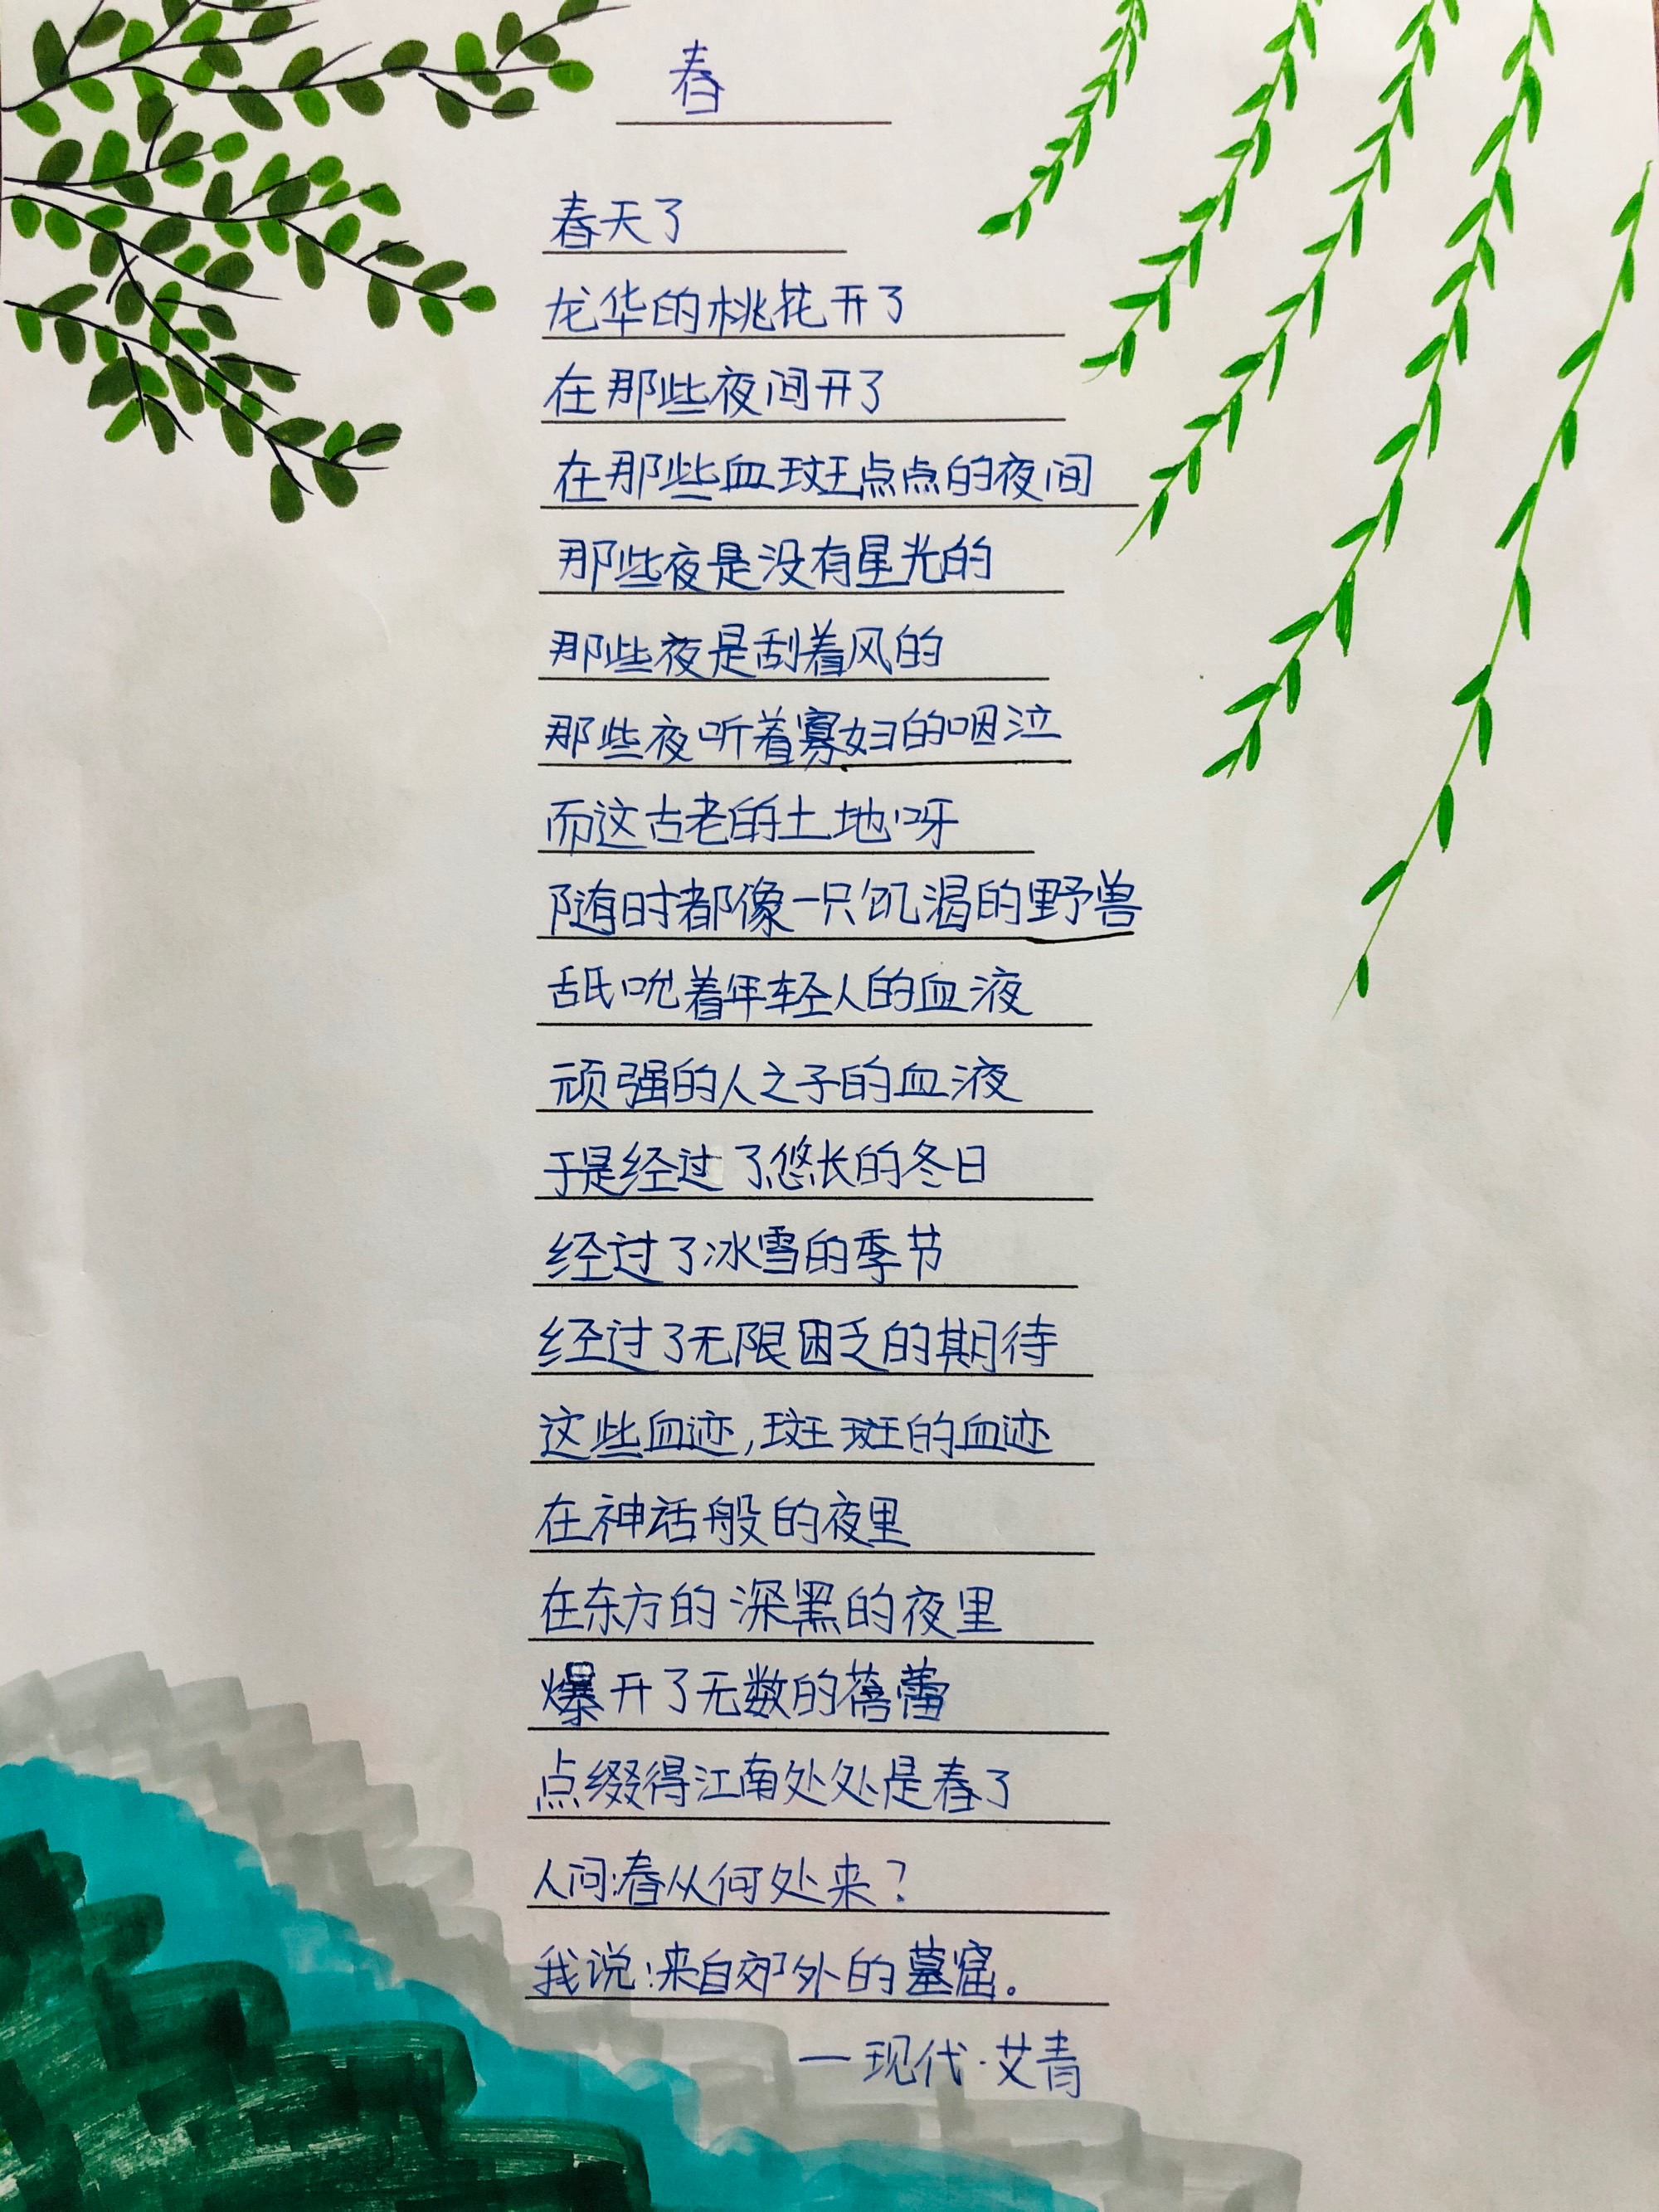 春
春天了
龙华的桃花开了
在那些夜间开了
在那些血斑点点的夜间
那些夜是没有星光的
那些夜是刮着风的
那些夜听着寡妇的咽泣
而这古老的土地呀
随时都像一只饥渴的野兽
舐吮着年轻人的血液
顽强的人之子的血液
于是经过了悠长的冬日
经过了冰雪的季节
经过了无限困乏的期待
这些血迹,斑斑的血迹
在神话般的夜里
在东方的深黑的夜里
爆开了无数的蓓蕾
点缀得江南处处是春了
人问:春从何处来?
我说:来自郊外的墓窟。
—现代·艾青